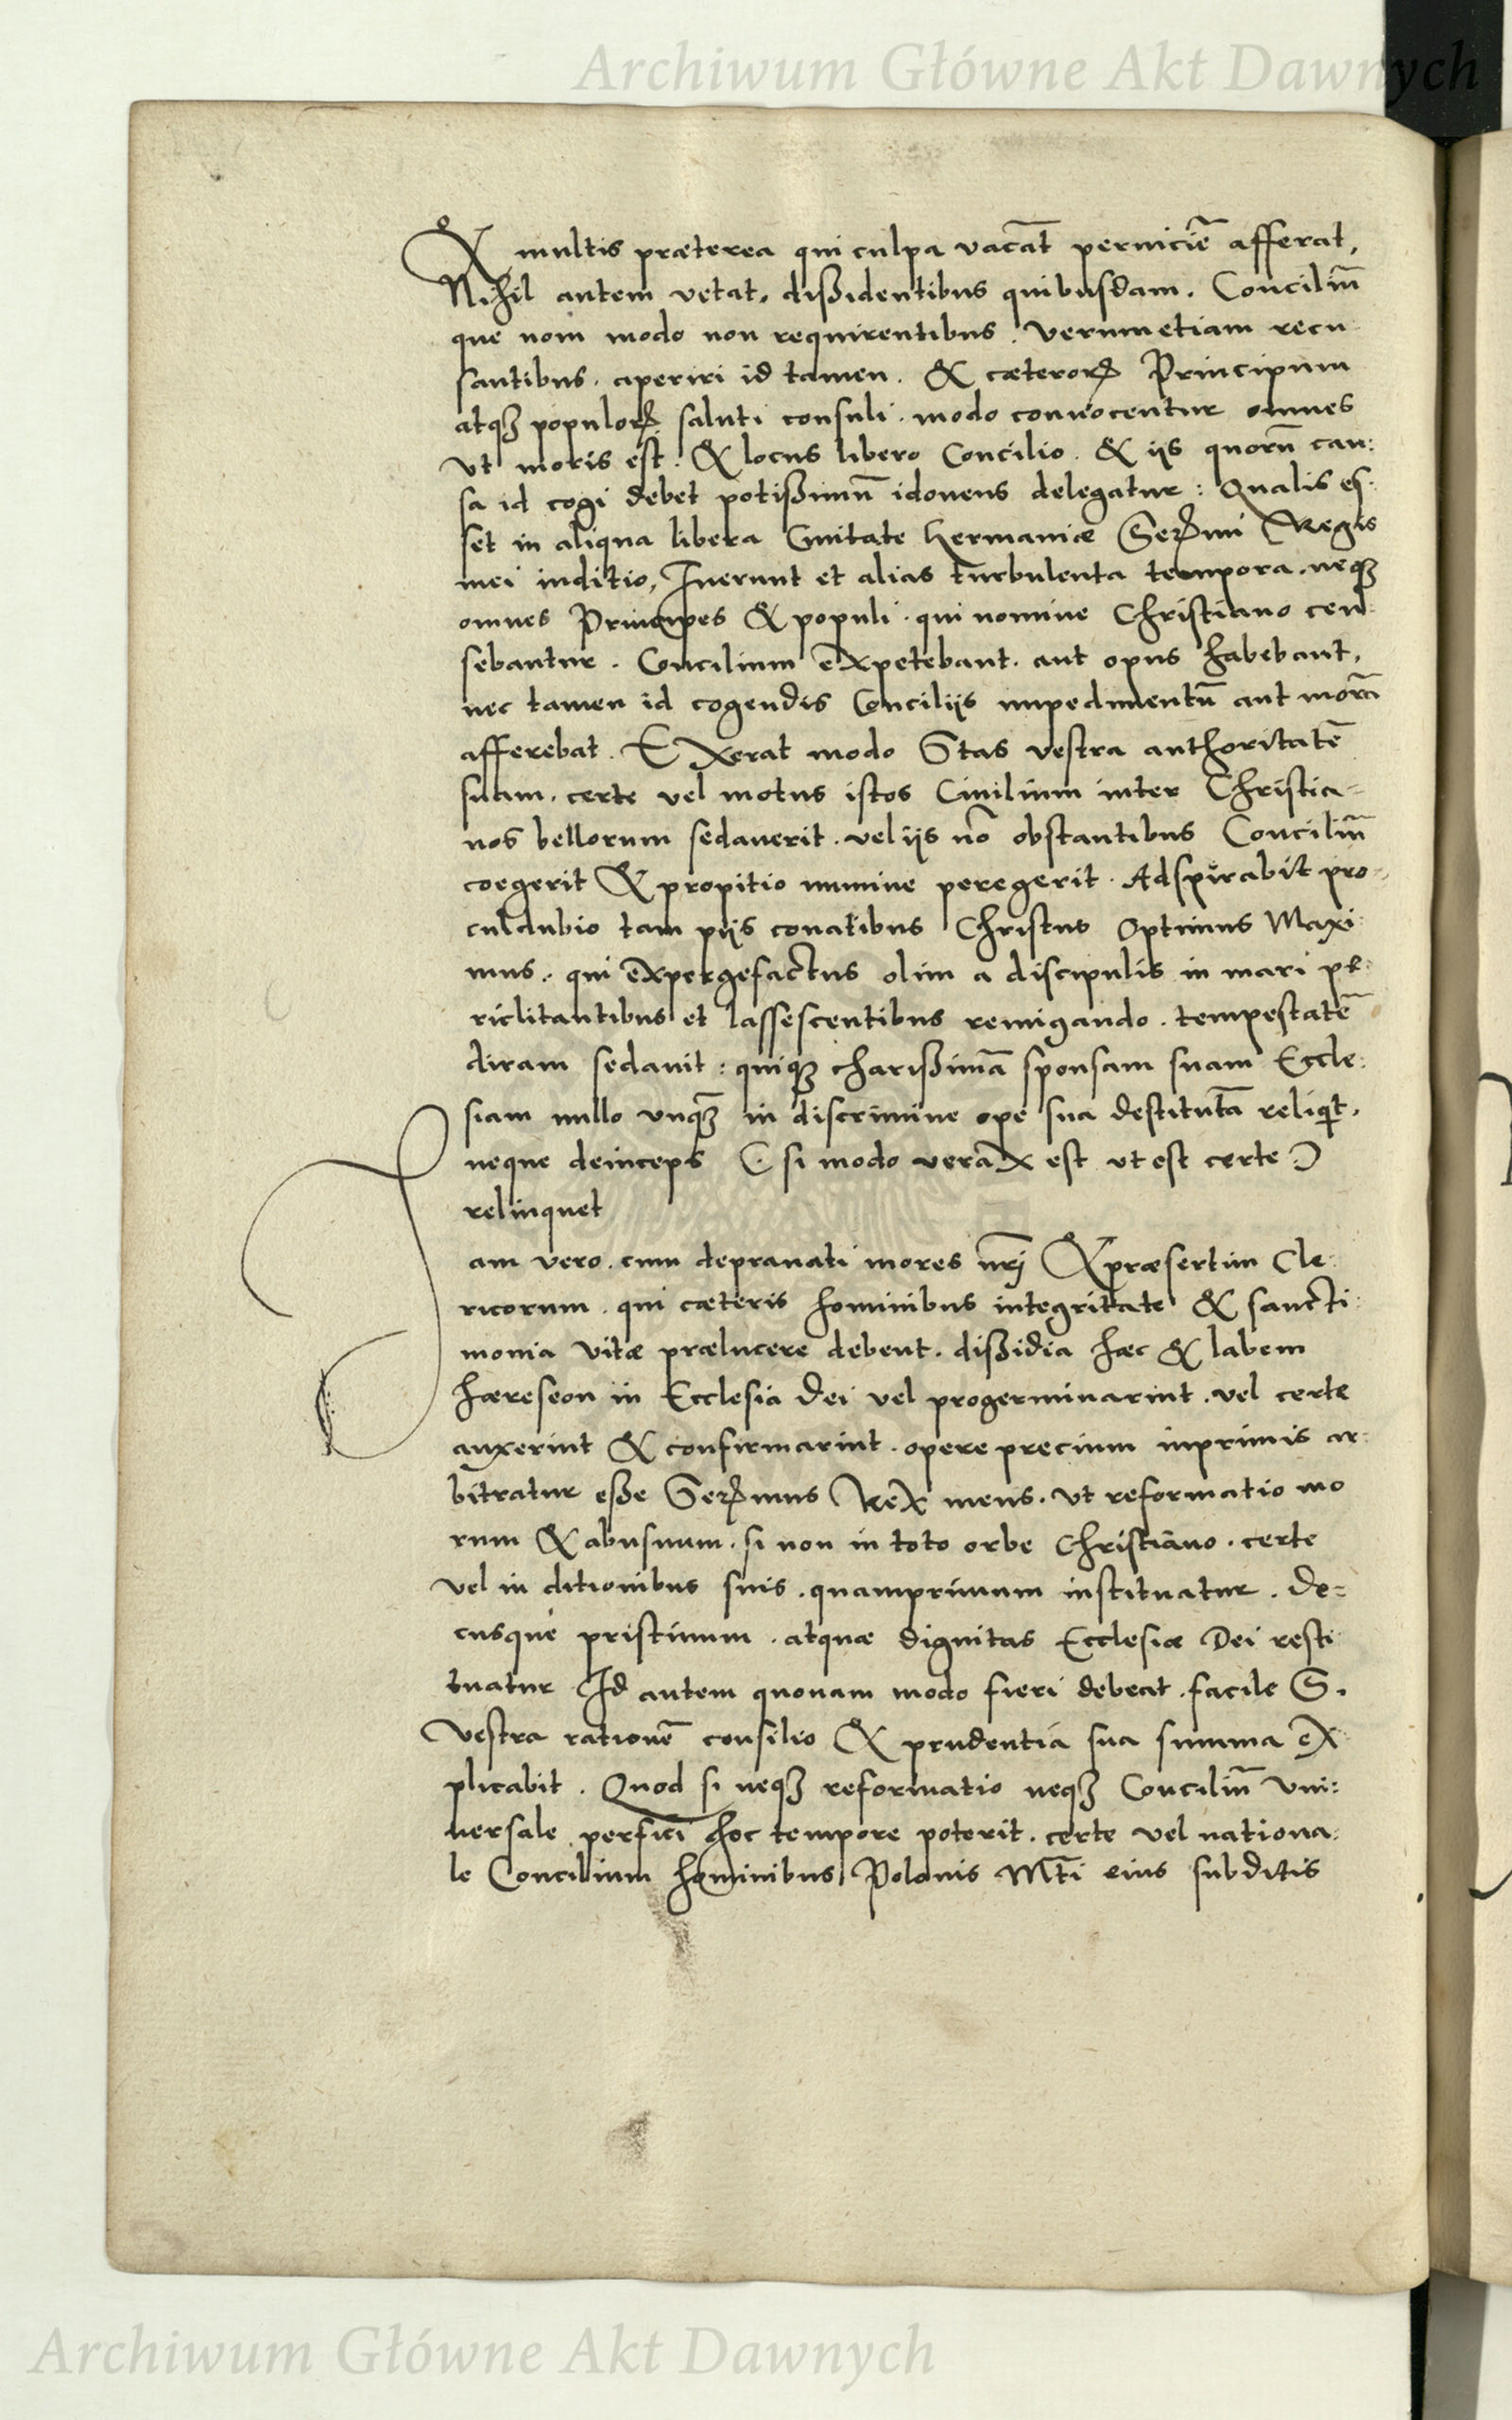 Archiwum Główne Akt Dawnych
& multis præterea qui culpa vacāt perniciē afferat,
Nihil autem vetat, dißidentibus quibusdam. Conciliū
que nom modo non requirentibus. verumetiam recu
santibus. aperiri id tamen. & cæteroꝝ Principum
atqꝫ populoꝝ saluti consuli. modo conuocentur omnes
vt moris est. & locus libero Concilio. & iis quorū cau:
sa id cogi debet potißimū idoneus delegatur: Qualis es:
set in aliqua libera Ciuitate Germaniæ Sereꝝmi Regis
mei iuditio, Fuerunt et alias turbulenta tempora. neqꝫ
omnes Principes & populi. qui nomine Christiano cen:
sebantur. Concilium expetebant. aut opus habebant,
nec tamen id cogendis Conciliis impedimentū aut morā
afferebat. Exerat modo Stas vestra authoritatē
suam. certe vel motus istos Ciuilium inter Christia=
nos bellorum sedauerit. vel iis nō obstantibus Conciliū
coegerit & propitio numine peregerit. Adspirabit pro=
culdubio tam piis conatibus Christus Optimus Maxi:
mus. qui expergefactus olim a discipulis in mari pe:
riclitantibus et lassescentibus remigando. tempestatē
diram sedauit: quiqꝫ charißimā sponsam suam Eccle:
siam nullo vnqꝫ in discrimine ope sua destitutā reliqt,
neque deinceps (si modo verax est vt est certe)
relinquet
Jam vero. cum deprauati mores nrī & præsertim Cle:
ricorum. qui cæteris hominibus integritate & sancti:
monia vitæ prælucere debent. dißidia hæc & labem
hæreseon in Ecclesia Dei vel progerminarint. vel certe
auxerint & confirmarint. opere precium inprimis ar:
bitratur eße Sereꝝmus Rex meus. vt reformatio mo
rum & abusuum. si non in toto orbe Christiano. certe
vel in ditionibus suis. quamprimum instituatur. De=
cusque pristinum. atquæ dignitas Ecclesiæ Dei resti
tuatur Id autem quonam modo fieri debeat. facile S.
Vestra rationē consilio & prudentia sua summa ex
plicabit. Quod si neqꝫ reformatio neqꝫ Conciliū Vni:
uersale perfici hoc tempore poterit. certe vel nationa:
le Concilium hominibus Polonis Mti eius subditis
Archiwum Główne Akt Dawnych